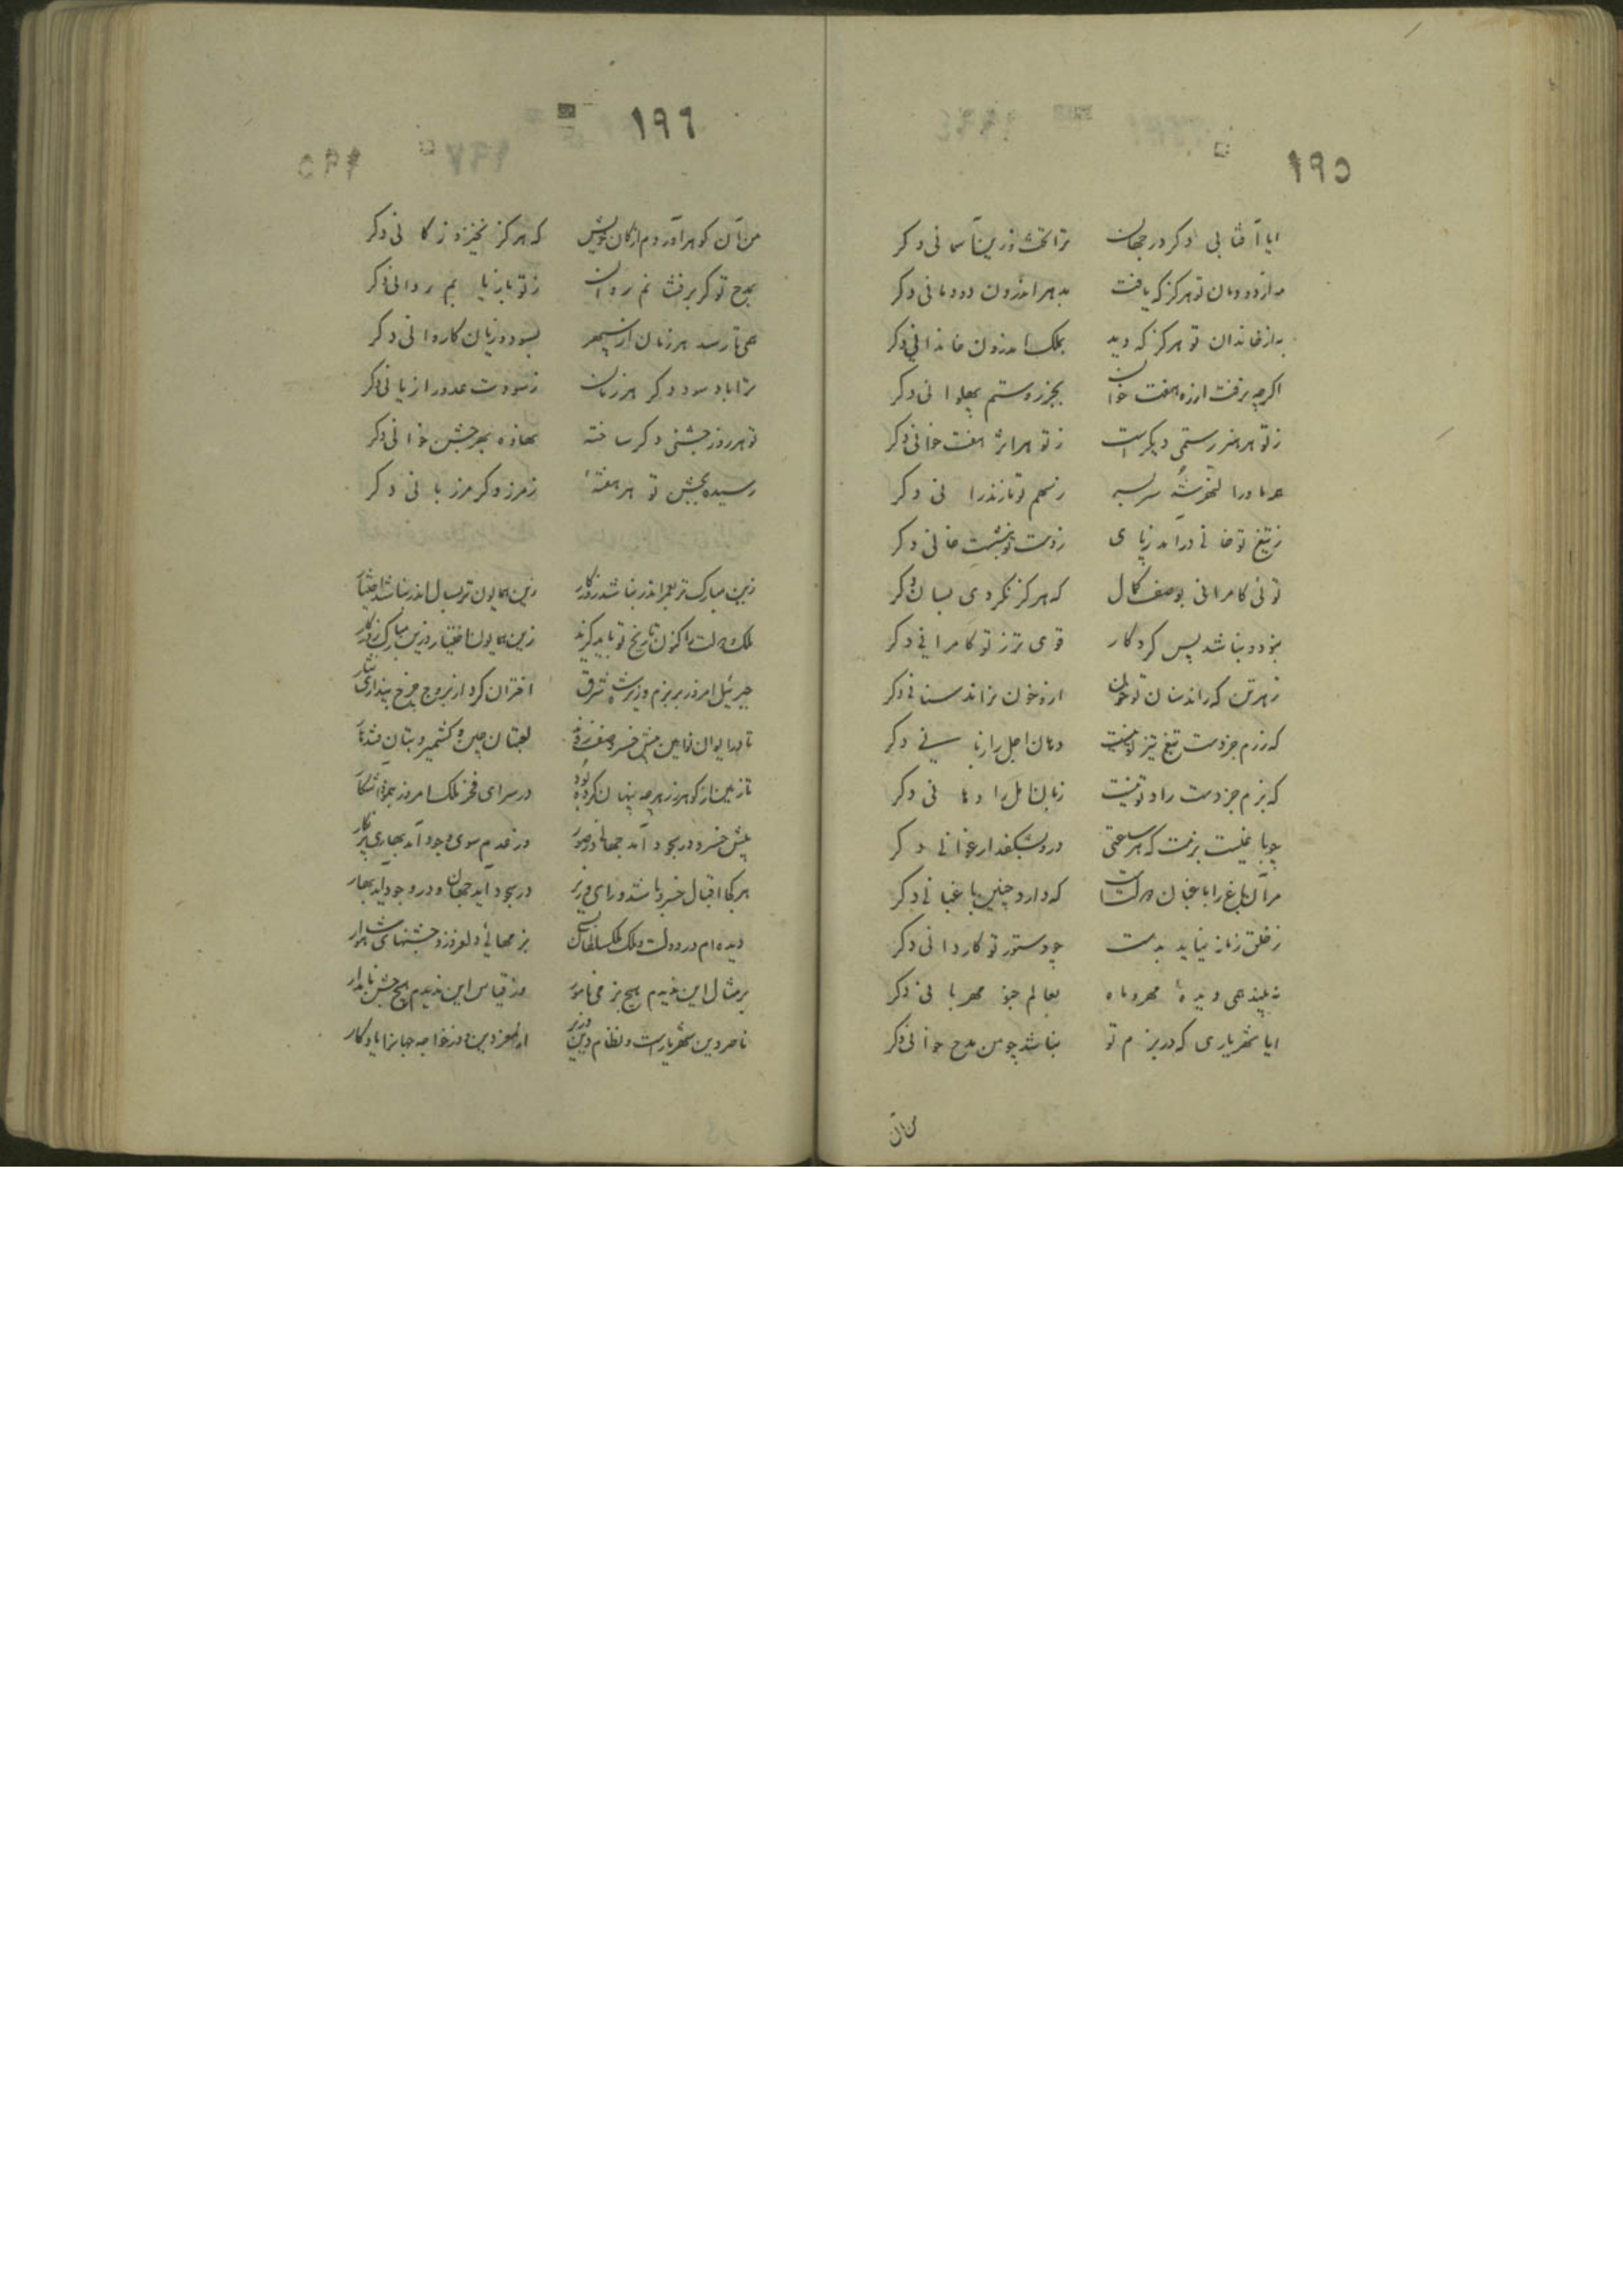 ١٩٥
ایا آفتابی دکر در جهان تراتخت زرین آسمانی دکر
به از دودمان تو هرکز که یافت بدهر اندرون دودمانی دکر
به از خاندان تو هرکز که دید بملک اندرون خاندانی دکر
اکرچه برفت ازره هفت خوان بجز روستم پهلوانی دکر
ز تو هر هنر رستمی دیکرست ز تو هر اثر هفت خوانی دکر
سر بسر ز سهم تو مازندرانی دکر
ز تیغ تو خانی درآمد ز پای ز دست تو بنشست خانی دکر
توئی کامرانی بوصف کمال که هرکز نکردی بسان دکر
نبود و نباشد پس کردکار قوی تر ز تو کامرانی دکر
ز هر تن که راند سنان تو خون ازو خون نراند سنانی دکر
که رزم جز دست تیغ تیز تو نیست دهان اجل را زبانی دکر
که بزم جز دست راد تو نیست زبان امل را دهانی دکر
چو باغیست بزمت که هر ساعتی درو بشکفد ارغوانی دکر
مر آن باغ را باغبان دولتست که دارد چنین باغبانی دکر
ز خلق زمانه نیاید بدست چو دستور تو کاردانی دکر
نه بیند همی دیدهٔ مهر و ماه بعالم جز مهربانی دکر
ایا شهریاری که در بزم تو نباشد چو من مدح خوانی دکر
من آن
١٩٦
من آن کوهر آوردم از کان خویش که هرکز نخیزد ز کانی دکر
بمدح تو کر برفت نم روان ز تو بازیابم روانی دکر
همی تا رسد هر زمان از سپهر بسود و زیان کاروانی دکر
ترا باد سود دکر هر زمان ز سودت عدو را زیانی دکر
تو هر روز جشنی دکر ساخته نهاده بهر جشن خوانی دکر
رسیده بجشن تو هر هفتهٔ ز مرز دکر مرزبانی دکر
زین مبارک تر بعمر اندر نباشد روزکار زین همایون تر بسال اندر نباشد اختیار
ملک و دولت را کنون تاریخ نو باید کرفت زین همایون اختیار وزین مبارک روزکار
جبرئیل امروز بر بزم وزیر شاه شرق اختران کرد از بروج چرخ پنداری نثار
تا بدایوان لعبتان چین و کشمیر و بتان قندهار
تا زمین از کوهر و زر هرچه پنهان کرده بود در سرای فخر ملک امروز شد آشکار
پیش خسرو در سجود آمد جهانی وز عدم سوی وجود آمد بهاری پرنکار
هر کجا اقبال خسرو باشد و رای وزیر در سجود آید جهان و در وجود آید بهار
دیده ام در دولت و ملک ملک سلطان بسی بزمهای دلفروز و جشنهای شاهوار
بر مثال این ندیدم هیچ بزمی نامور وز قیاس این ندیدم هیچ جشن نامدار
ناصر دین شهریارست و نظام دین وزیر